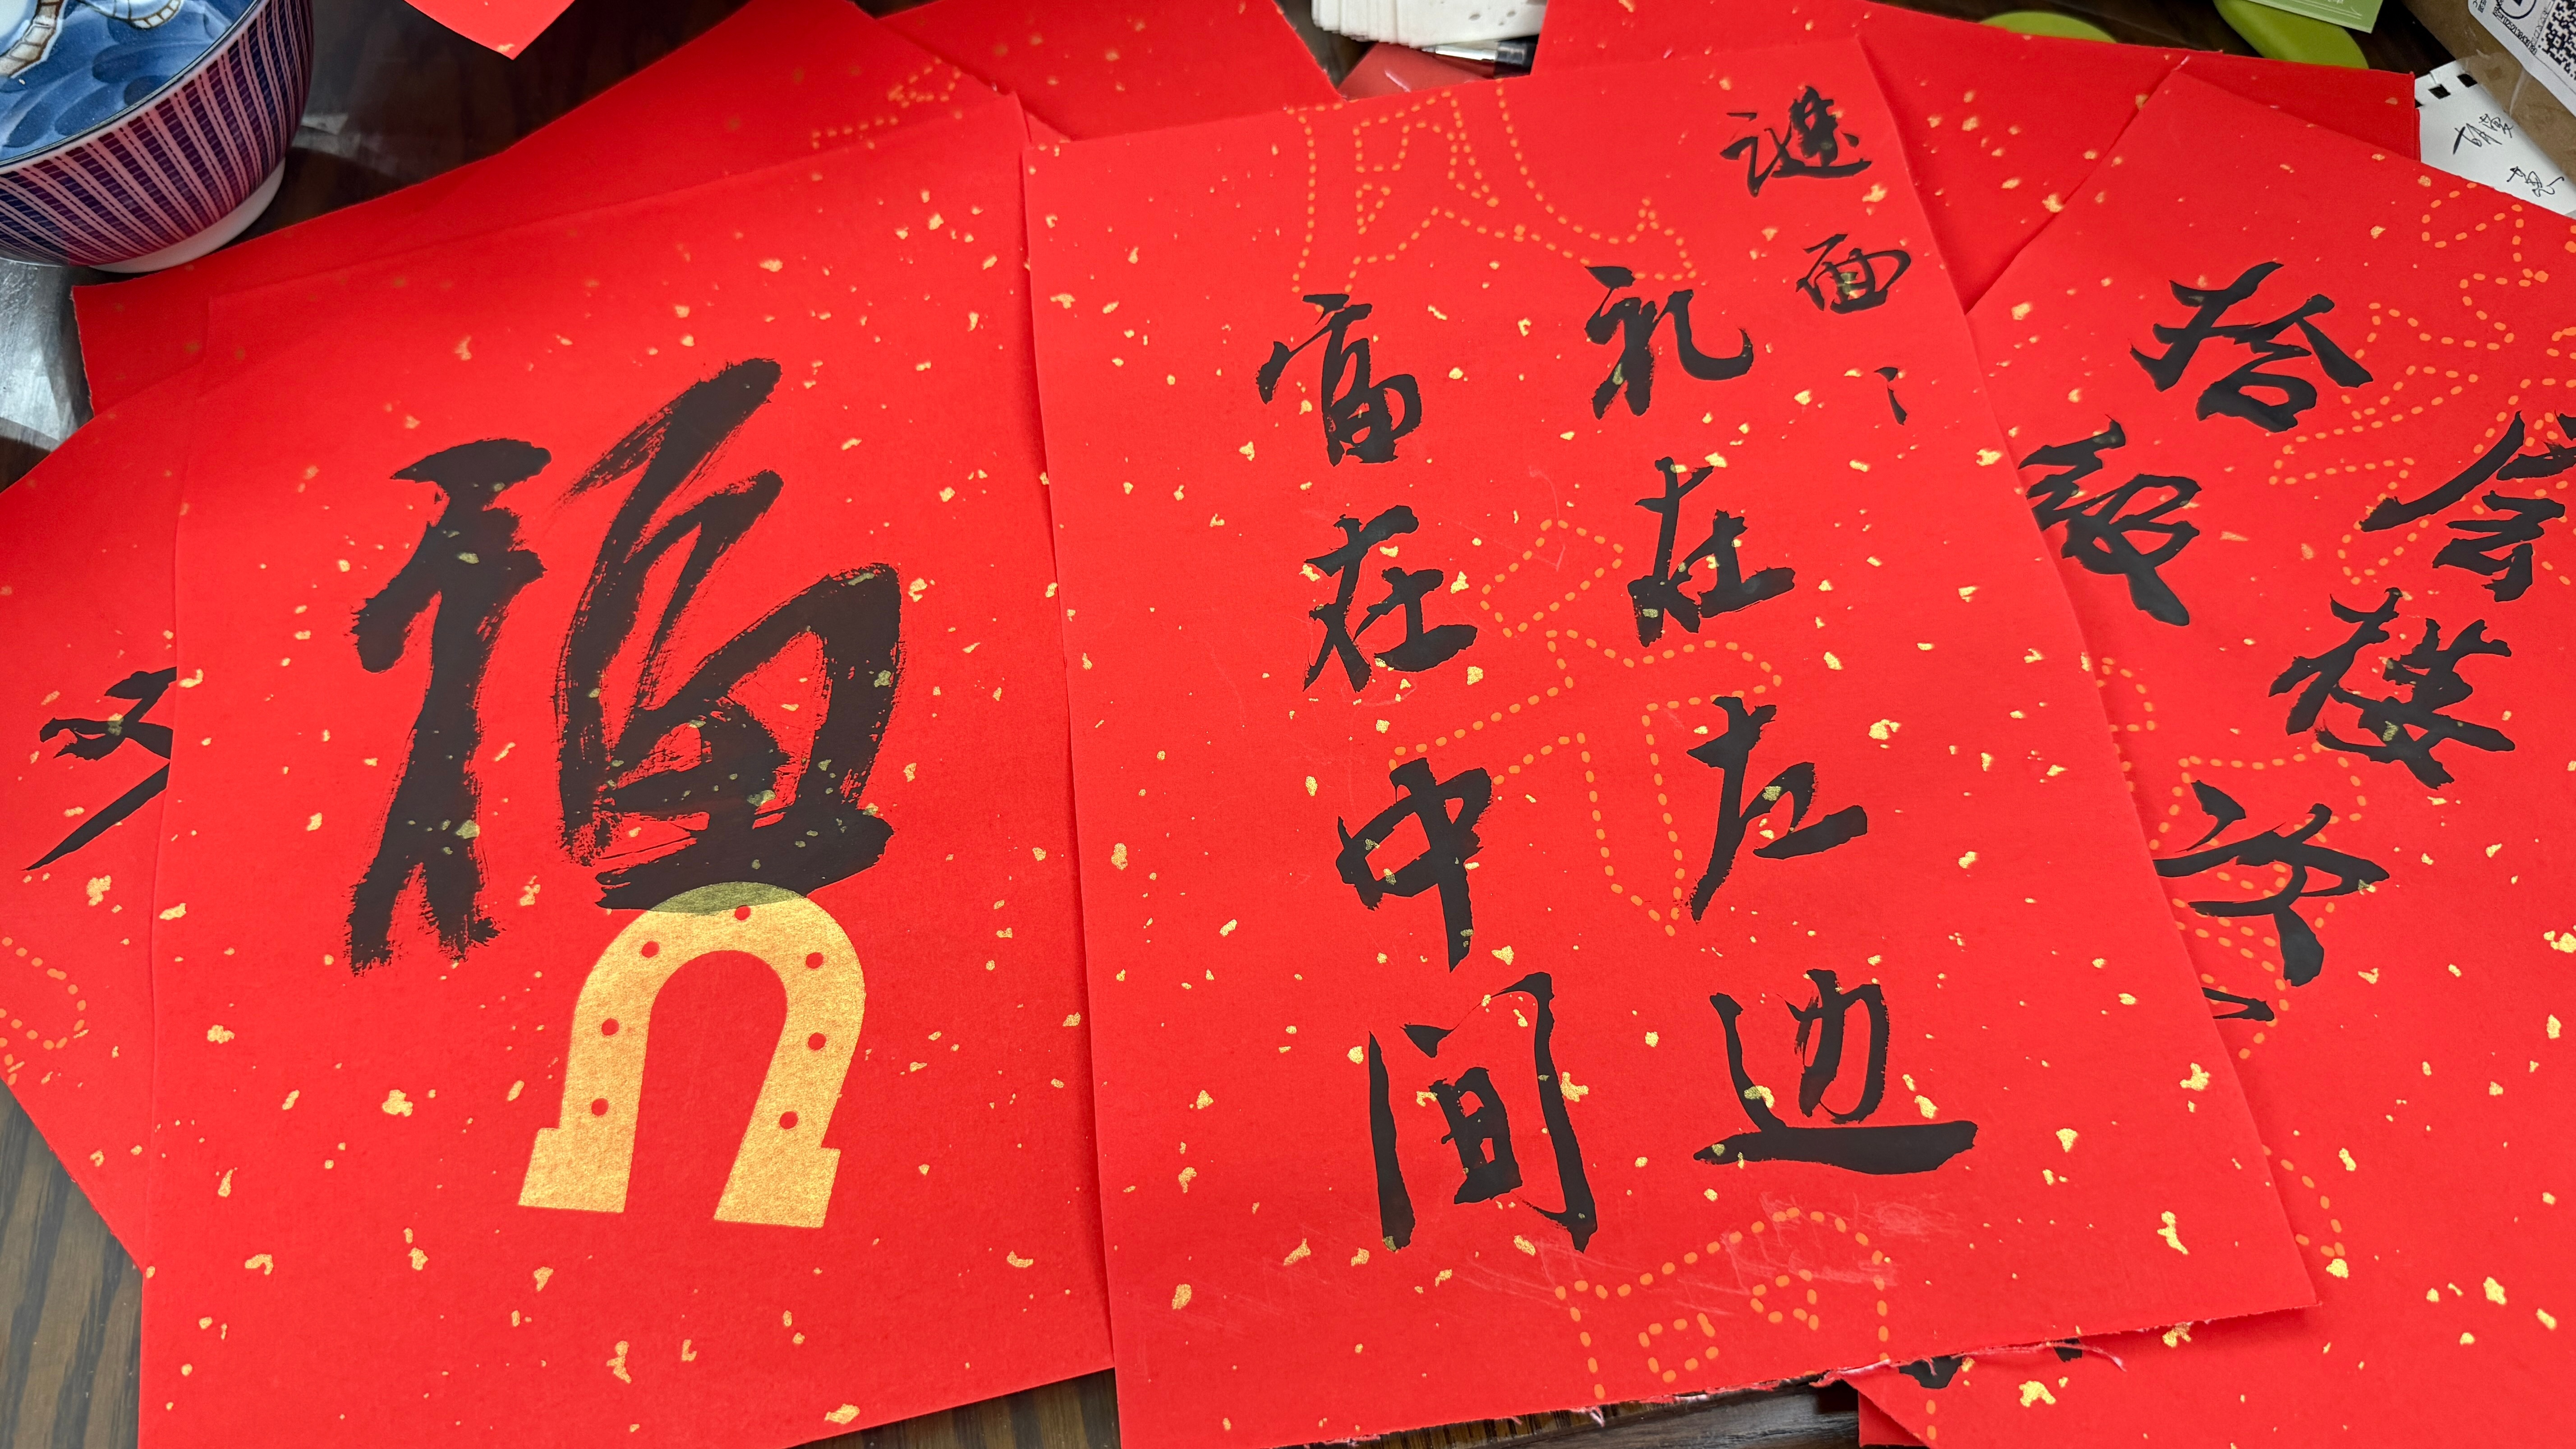 拾
楼
谜面:
礼在左边
富在中间
福